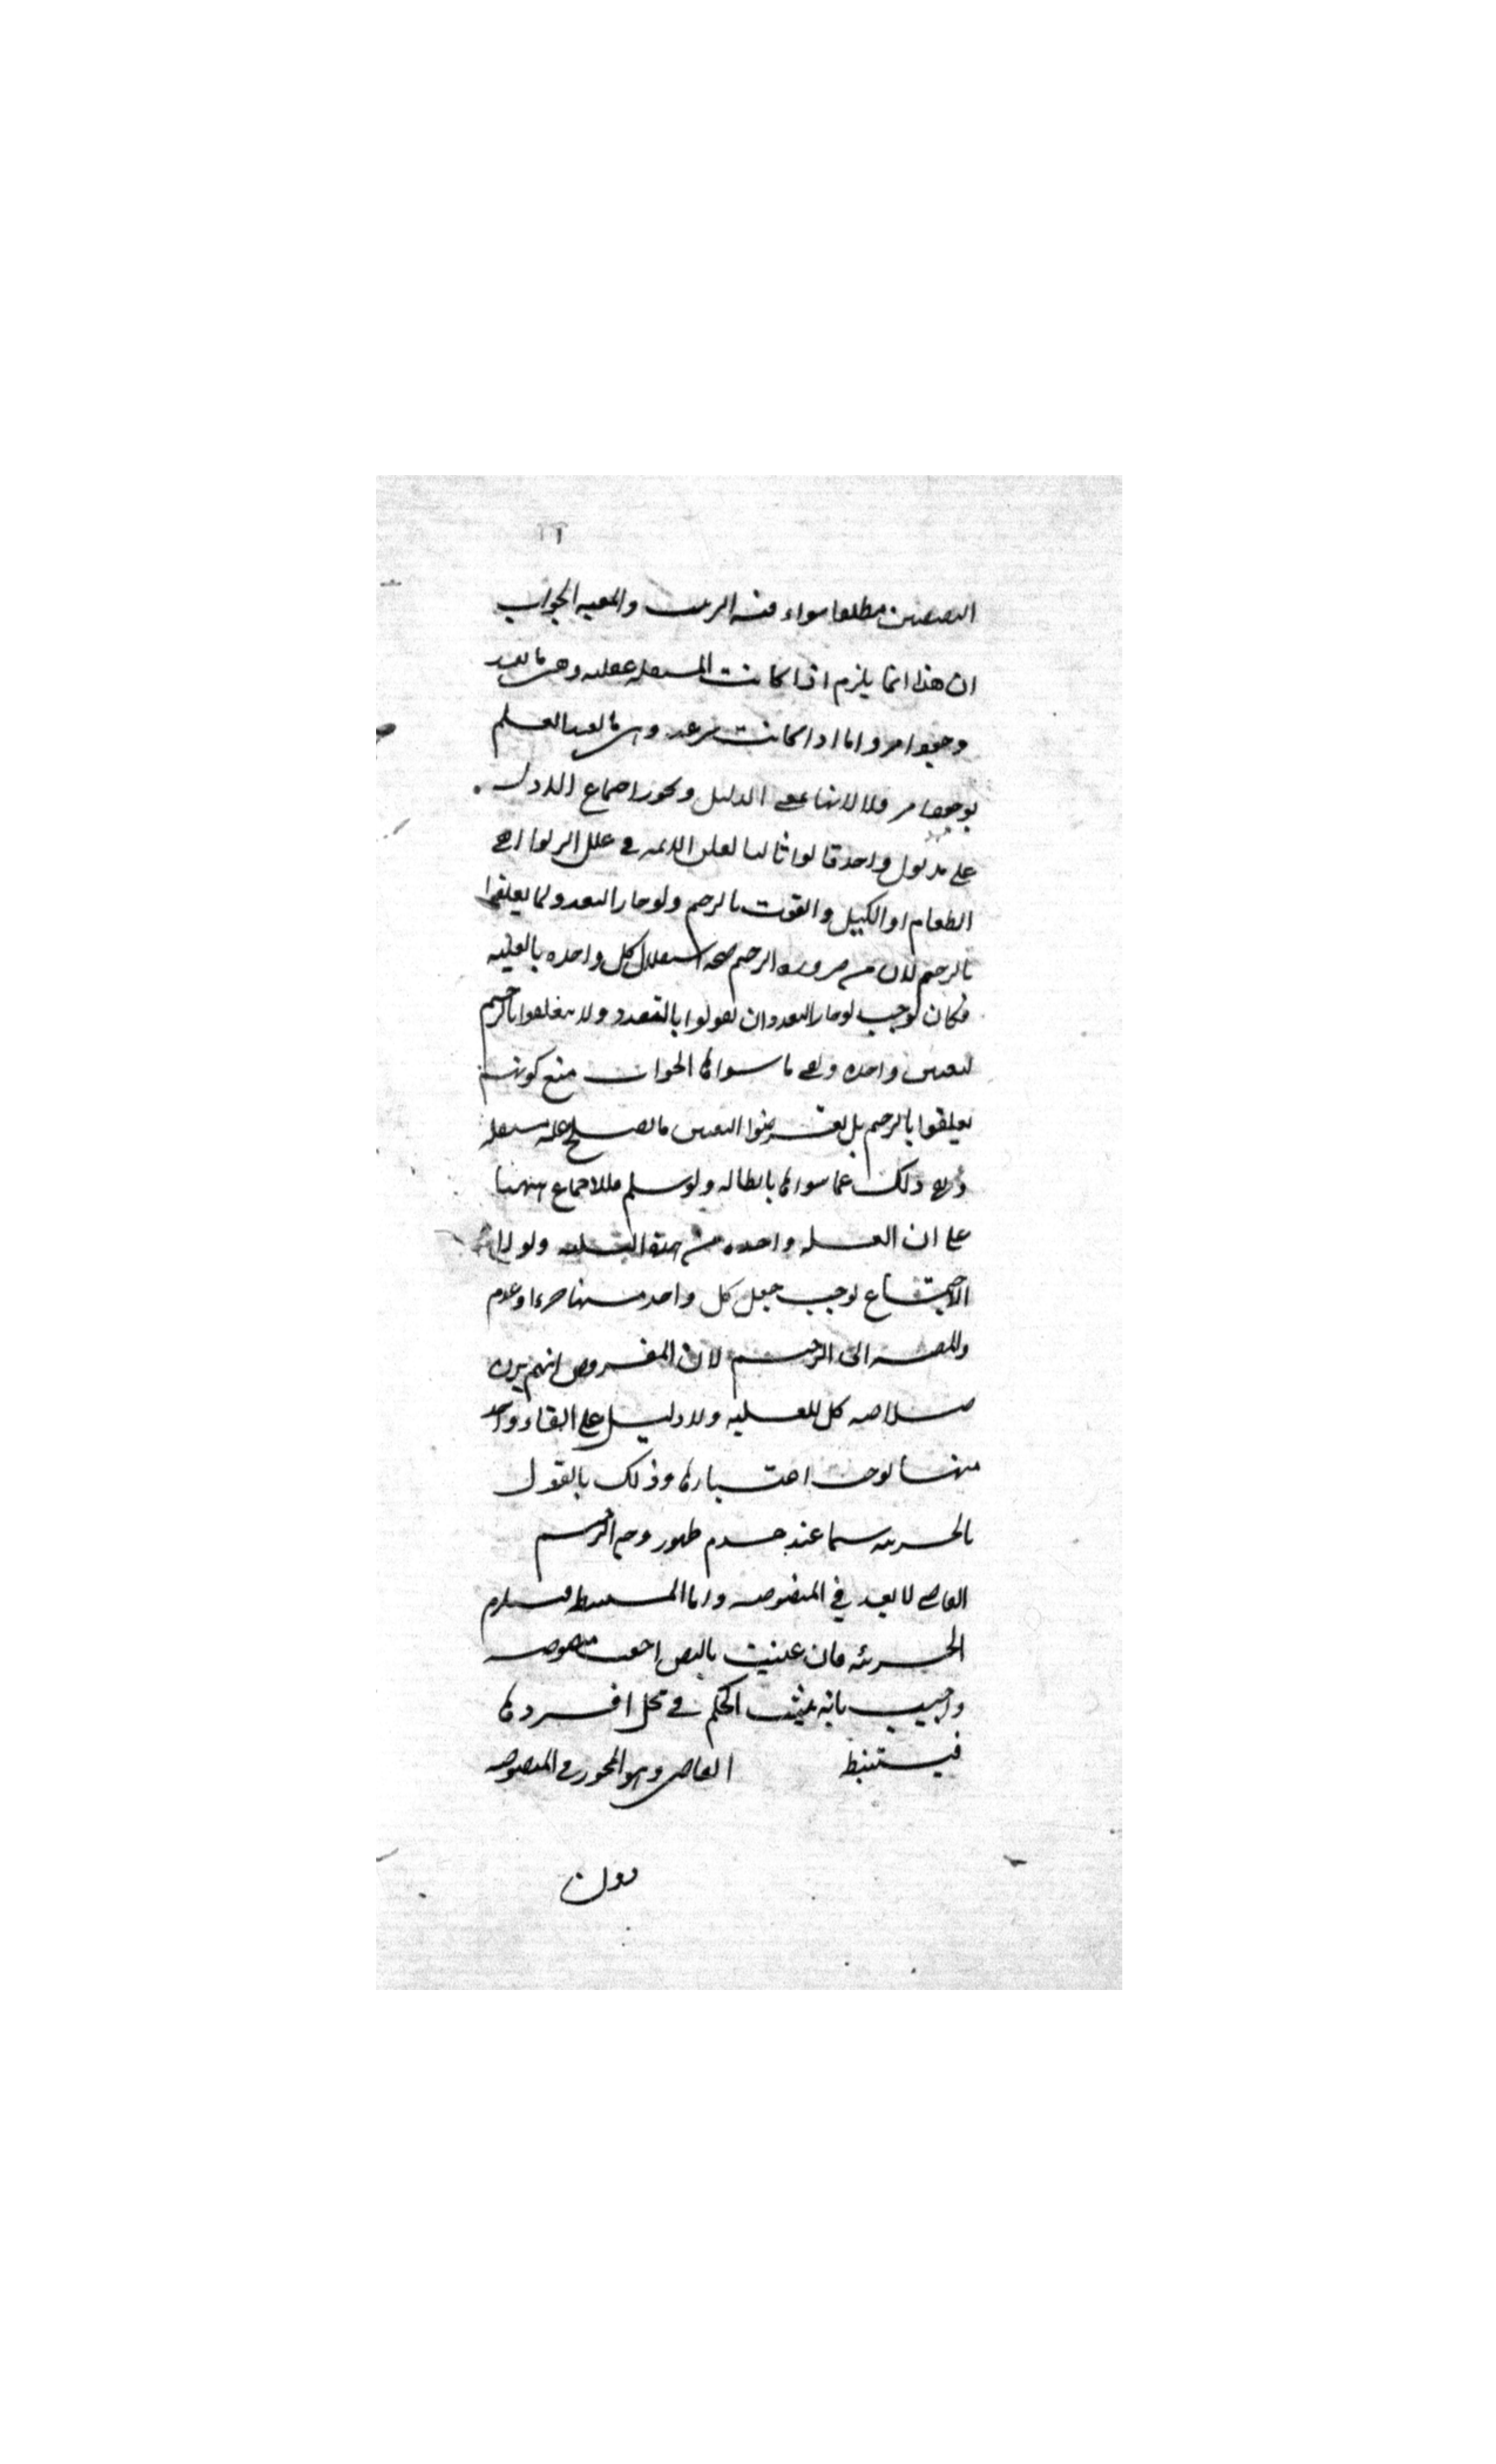 النقيضين مطلقا سواء فيه الترتيب والمعية الجواب
ان هذا انما يلزم اذا كانت المستقلة عقلية وهي ما يفيد
وجود امر واما اذا كانت شرعية وهي ما يفيد العلم
بوجود امر فلا لانها بمعنى الدليل ويجوز اجتماع الادلة
على مدلول واحد قالوا ثالثا تعلق الائمة في علل الربوا اهي
الطعام او الكيل والقوت بالترجيح ولو جاز التعدد لما تعلقوا
بالترجيح لان من ضرورة الترجيح صحة استقلال كل واحدة بالعلية
فكان يوجب لو جاز التعدد ان يقولوا بالتعدد ولا يتعلقوا بالترجيح
لتعيين واحدة ونفي ما سواها الجواب منع كونهم
تعلقوا بالترجيح بل تعرضوا لتعيين ما يصلح علة مستقلة
ونفي ذلك عما سواها بابطاله ولو سلم فللاجماع ههنا
على ان العلة واحدة من هذه الثلثة ولولا
الاجماع لوجب جعل كل واحد منها جزءا وعدم
الى الترجيح لان المفروض انهم يرون
صلاحية كل للعلية ولا دليل على الغاء واحد
منها فوجب اعتبارها وذلك بالقول
بالجزئية سيما عند عدم ظهور وجه الترجيح
القاضي لا بعد في المنصوصة واما المستنبطة فيستلزم
الجزئية فان عينت بالنص رجعت منصوصة
واجيب بانه يثبت الحكم في محل افرادها
فيستنبط القاضي وهو المجوز في المنصوصة
دون